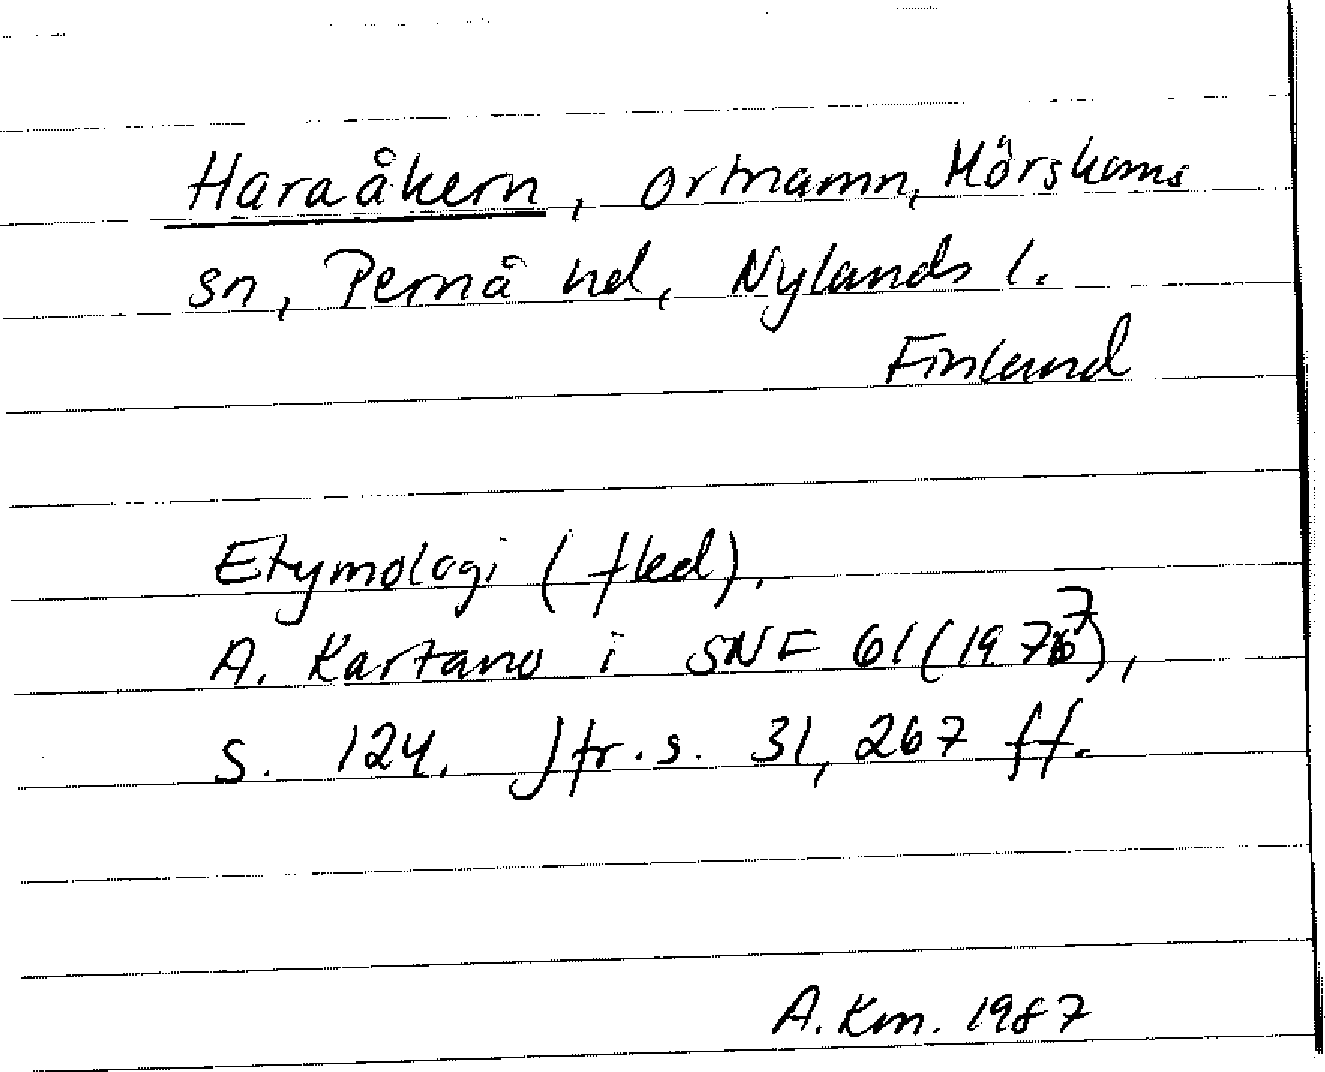 Haraåkern, ortnamn, Mörskoms
sn, Pernå hd, Nylands l.
Finland
Etymologi (fled).
A. Kartano i SNF 61 (1977),
s. 124. Jfr. s. 31, 267 ff.
A. Km. 1987